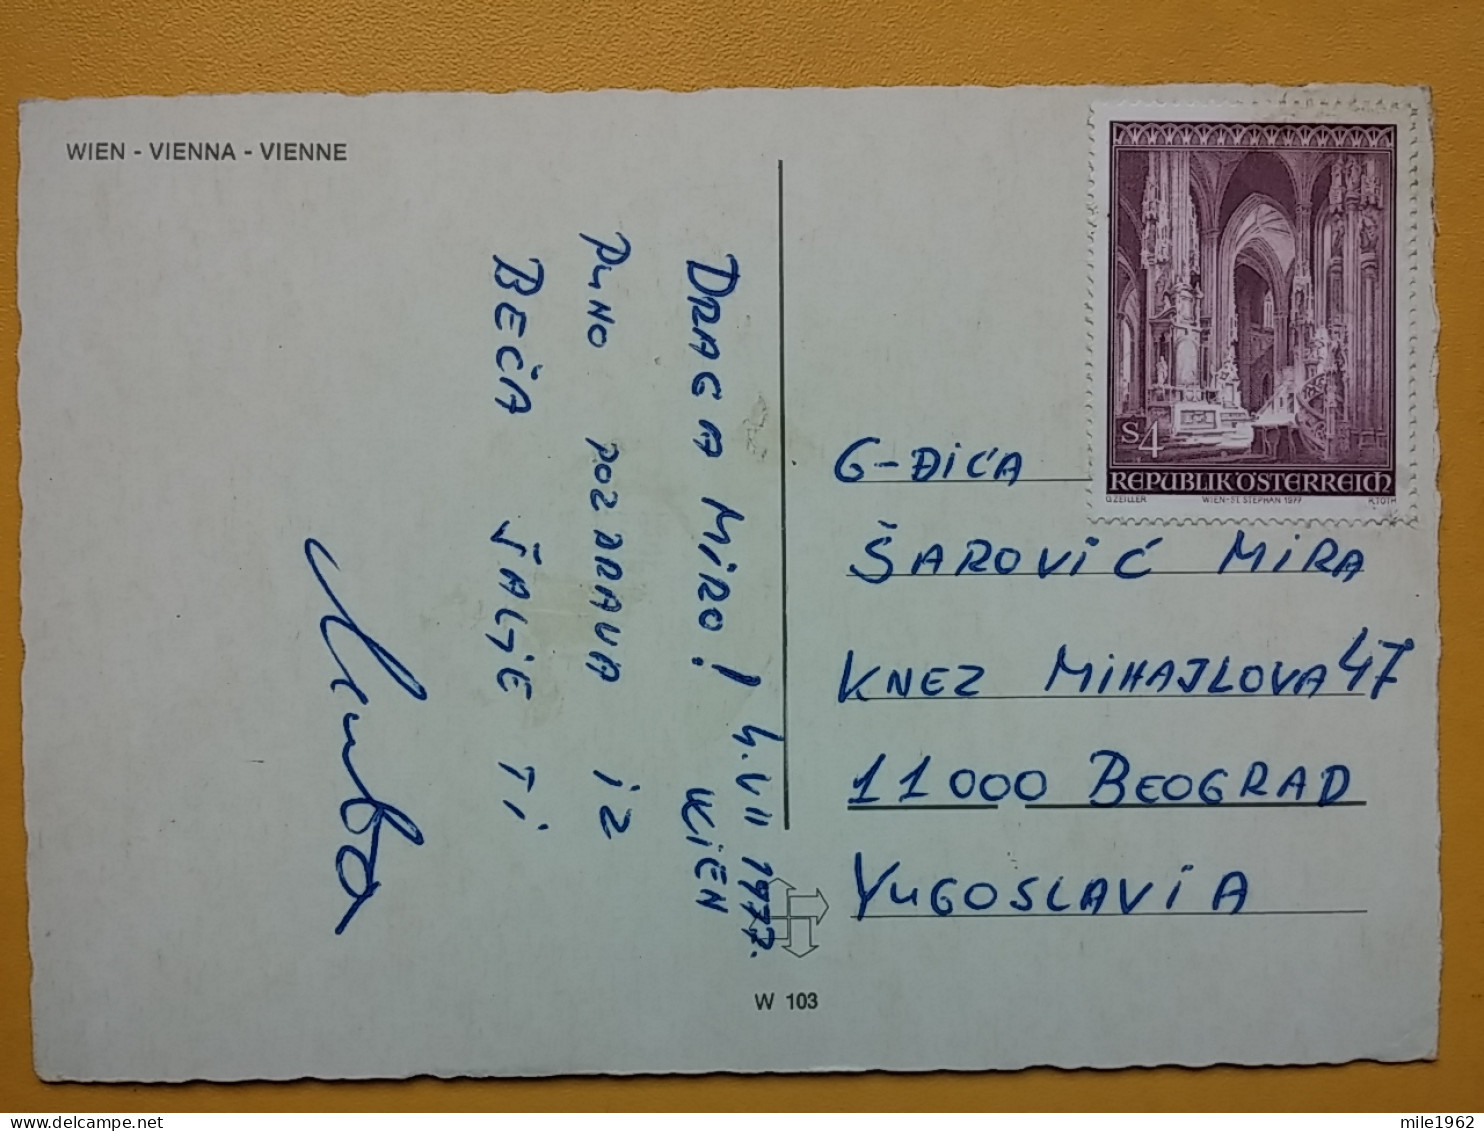 WIEN - VIENNA - VIENNE
4.VII 1977.
WIEN
DRAGA MIRO!
PUNO POZDRAVA IZ
BEČA ŠALJE TI
S4
REPUBLIK ÖSTERREICH
O.ZEILLER WIEN-ST. STEPHAN 1977 R.TOTH
G-ĐICA
ŠAROVIĆ MIRA
KNEZ MIHAJLOVA 47
11000 BEOGRAD
YUGOSLAVIA
W 103
mile1962